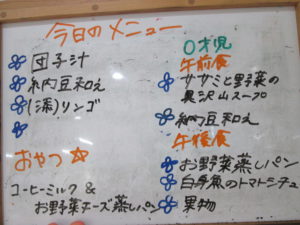 今日のメニュー
団子汁
納豆和え
(添)リンゴ
おやつ
コーヒーミルク &
お野菜チーズ蒸しパン
0才児
午前食
ササミと野菜の
具沢山スープ
納豆和え
午後食
お野菜蒸しパン
白身魚のトマトシチュー
果物